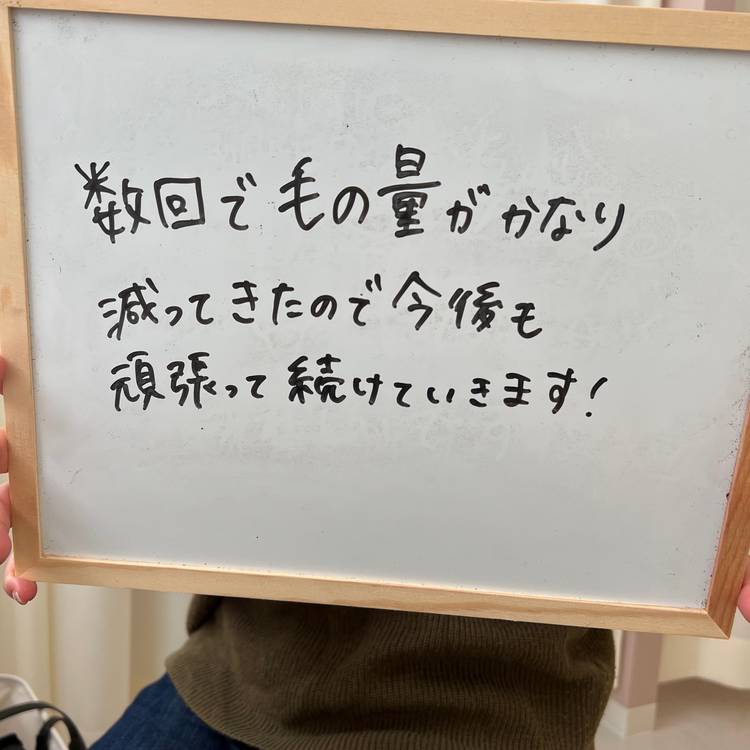 数回で毛の量がかなり
減ってきたので今後も
頑張って続けていきます!